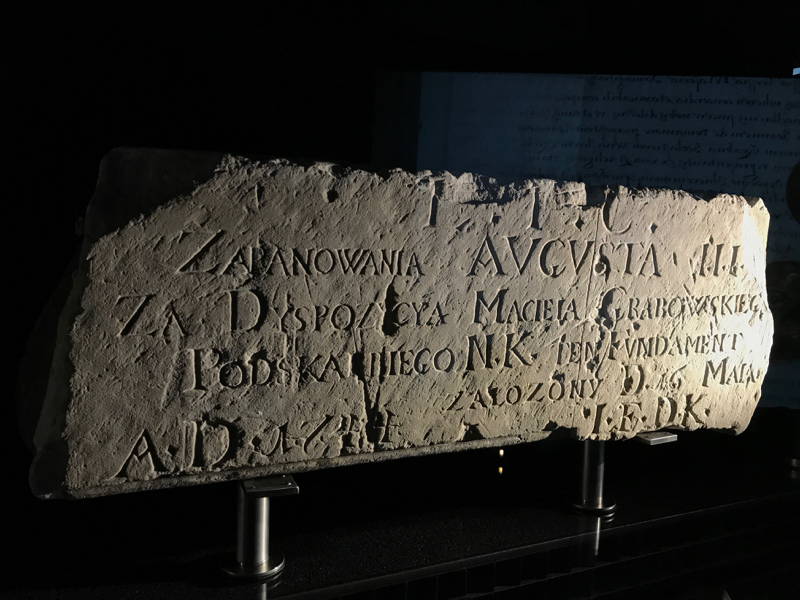 I. C.
ZAPANOWANIA AUGUSTA III.
ZA DYSPOZYCYA MACIEIA GRABOWSKIEG
PODSKARBIEGO N.K. TEN FUNDAMENT
ZALOZONY D. 16 MAIA.
A.D. I.F.D.K.